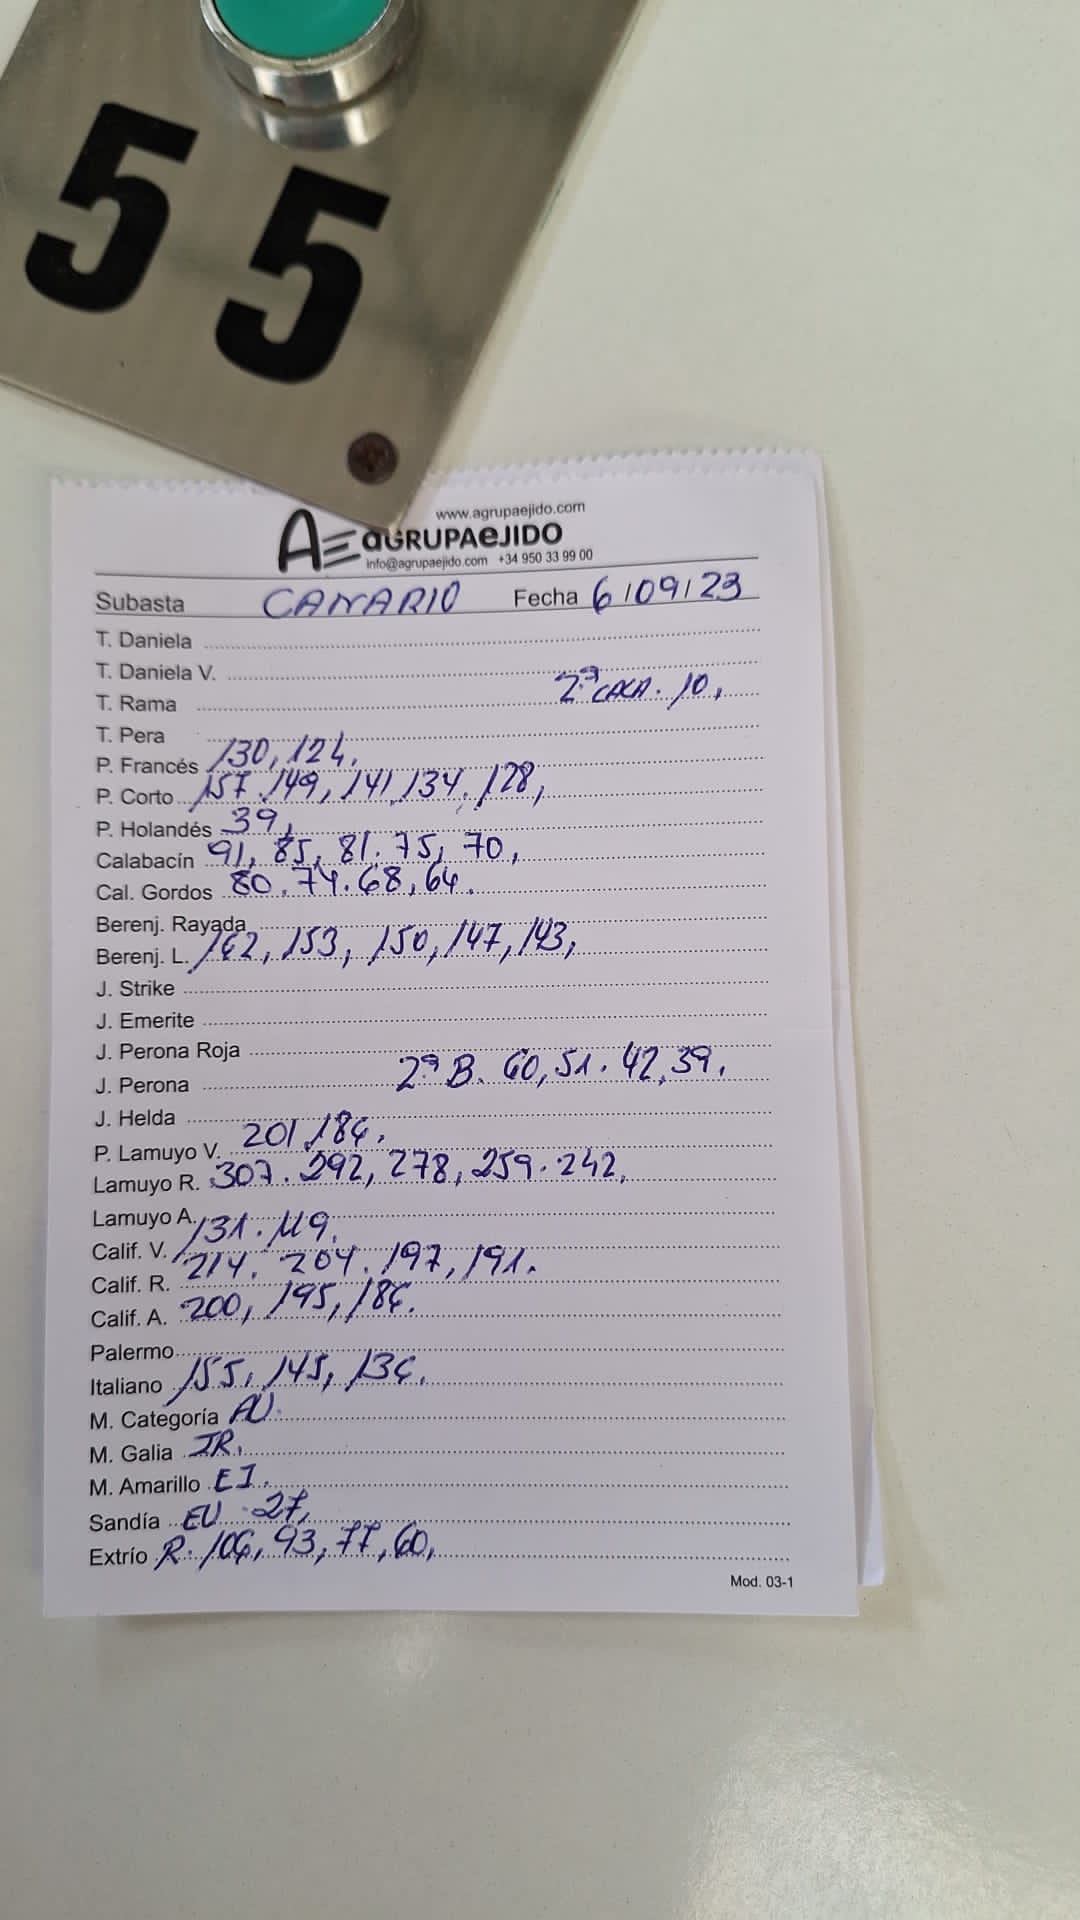 55
www.agrupaejido.com
AE aGRUPAeJIDO
info@agrupaejido.com +34 950 33 99 00
Subasta CANARIO Fecha 6/09/23
T. Daniela
T. Daniela V.
T. Rama 2ª CAXA. 10,
T. Pera
P. Francés 130, 124.
P. Corto 157. 149, 141, 134. 128,
P. Holandés 39,
Calabacín 91, 85, 81. 75, 70,
Cal. Gordos 80. 74. 68, 64.
Berenj. Rayada
Berenj. L. 162, 153, 150, 147, 143,
J. Strike
J. Emerite
J. Perona Roja
J. Perona 2ª B. 60, 51. 42, 39.
J. Helda
P. Lamuyo V. 201, 186.
Lamuyo R. 307. 292, 278, 259. 242,
Lamuyo A.
Calif. V. 131. 119.
Calif. R. 214. 204. 197, 191.
Calif. A. 200, 195, 186.
Palermo
Italiano 155, 145, 136.
M. Categoría AU.
M. Galia JR.
M. Amarillo EJ.
Sandía EU 27,
Extrío R. 106, 93, 77, 60,
Mod. 03-1